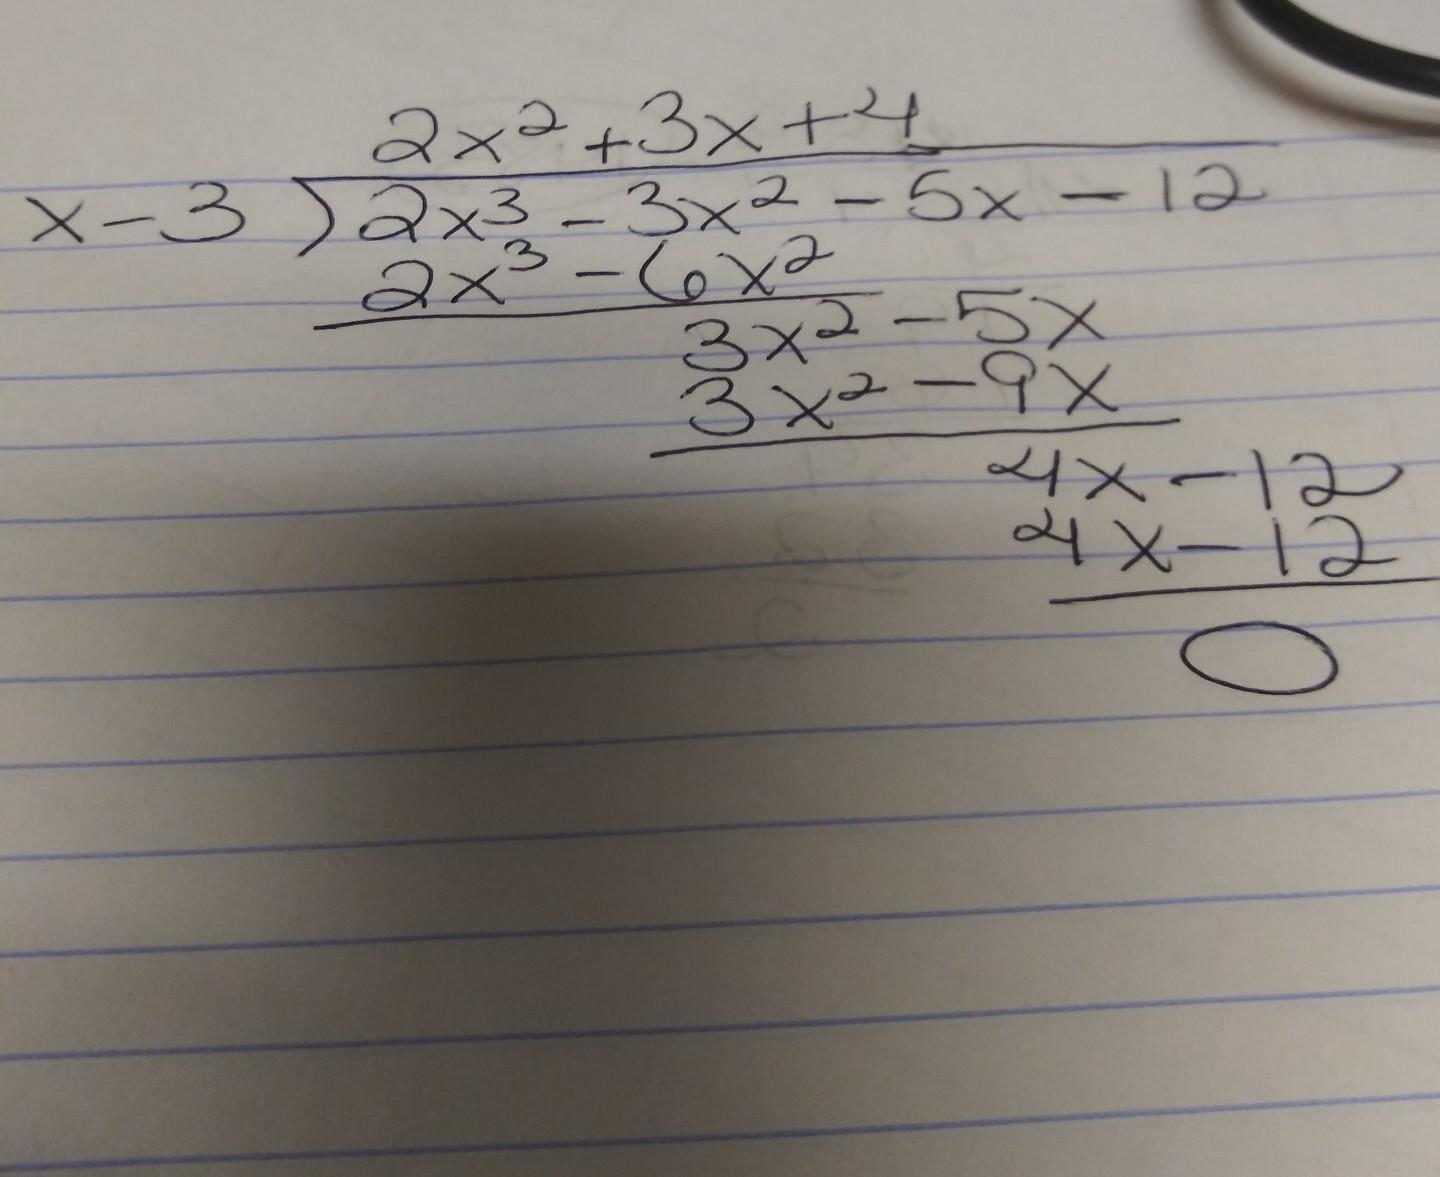 2x² + 3x + 4
x - 3 ) 2x³ - 3x² - 5x - 12
2x³ - 6x²
3x² - 5x
3x² - 9x
4x - 12
4x - 12
0